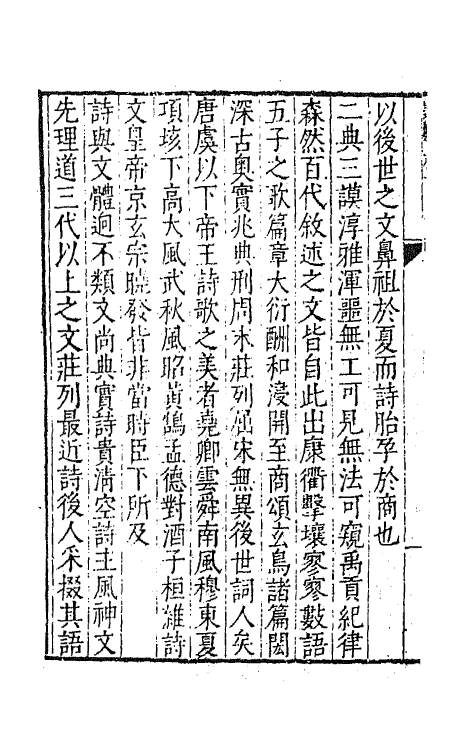 以後世之文鼻祖於夏而詩胎孕於商也
二典三謨淳雅渾噩無工可見無法可窺禹貢紀律
森然百代敘述之文皆自此出康衢擊壤寥寥數語
五子之歌篇章大衍酬和浸開至商頌玄鳥諸篇閎
深古奧實兆典刑周末莊列屈宋無異後世詞人矣
唐虞以下帝王詩歌之美者堯卿雲舜南風穆東夏
項垓下高大風武秋風昭黃鵠孟德對酒子桓雜詩
文皇帝京玄宗曉發皆非當時臣下所及
詩與文體迥不類文尚典實詩貴清空詩主風神文
先理道三代以上之文莊列最近詩後人采掇其語